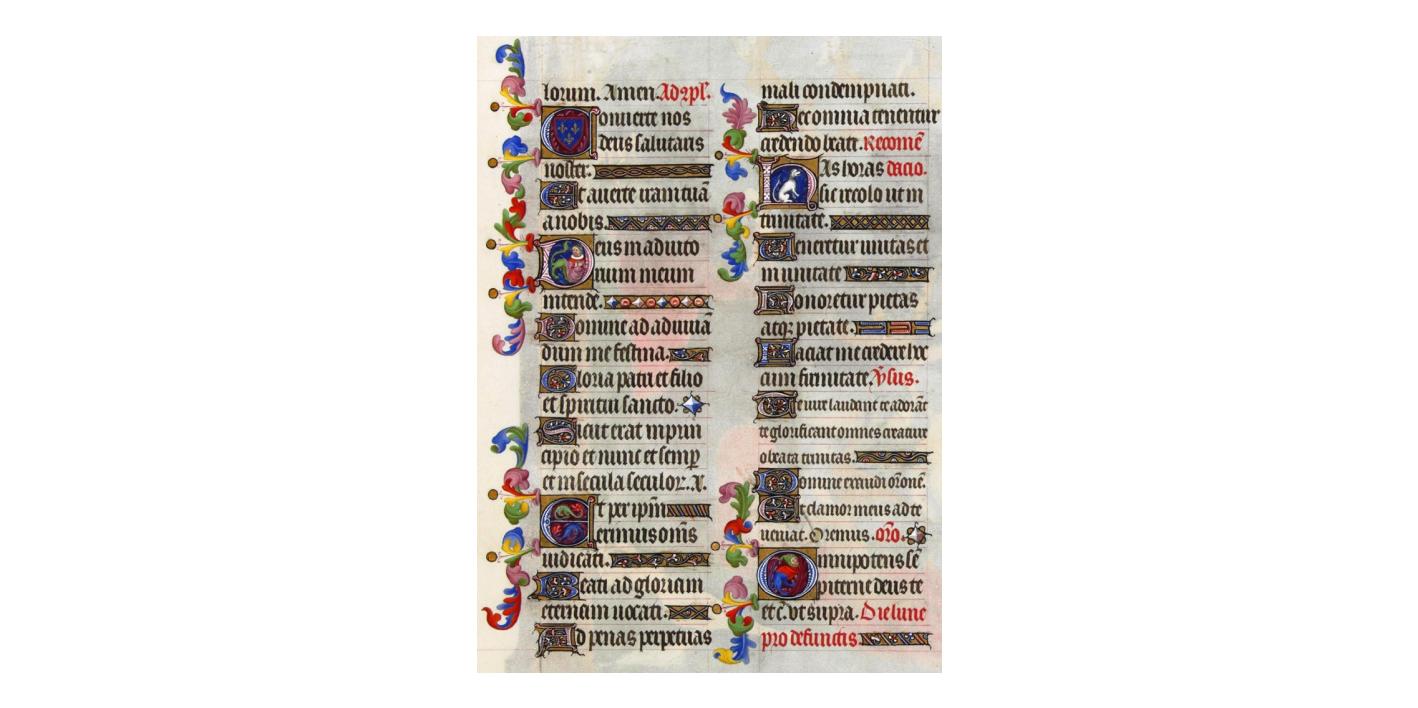 lorum. Amen. Ad 9pl'.
Conuerte nos
deus salutaris
noster.
Et auerte iram tuā
a nobis.
Deus in adiuto
rium meum
intende.
Domine ad adiuuā
dum me festina.
Gloria patri et filio
et spiritui sancto.
Sicut erat in prin
cipio et nunc et semp
et in secula seculoꝝ. A.
Et per ipm̄
erimus om̄s
iudicati.
Beati ad gloriam
eternam uocati.
Ad penas perpetuas
mali condempnati.
Hec omnia tenentur
credendo beati. Recomē
Has horas dacio.
sic recolo ut in
trinitate.
Ueneretur unitas et
in unitate
Honoretur pietas
atqꝫ pietate.
Faciat me credere hec
cum firmitate. V̄sus.
Te iure laudant te adorāt
te glorificant omnes creature
o beata trinitas.
Domine exaudi or̄onē.
Et clamor meus ad te
ueniat. Oremus. or̄o.
Omnipotens sē
piterne deus te
et c̄. vt supra. Die lune
pro defunctis.